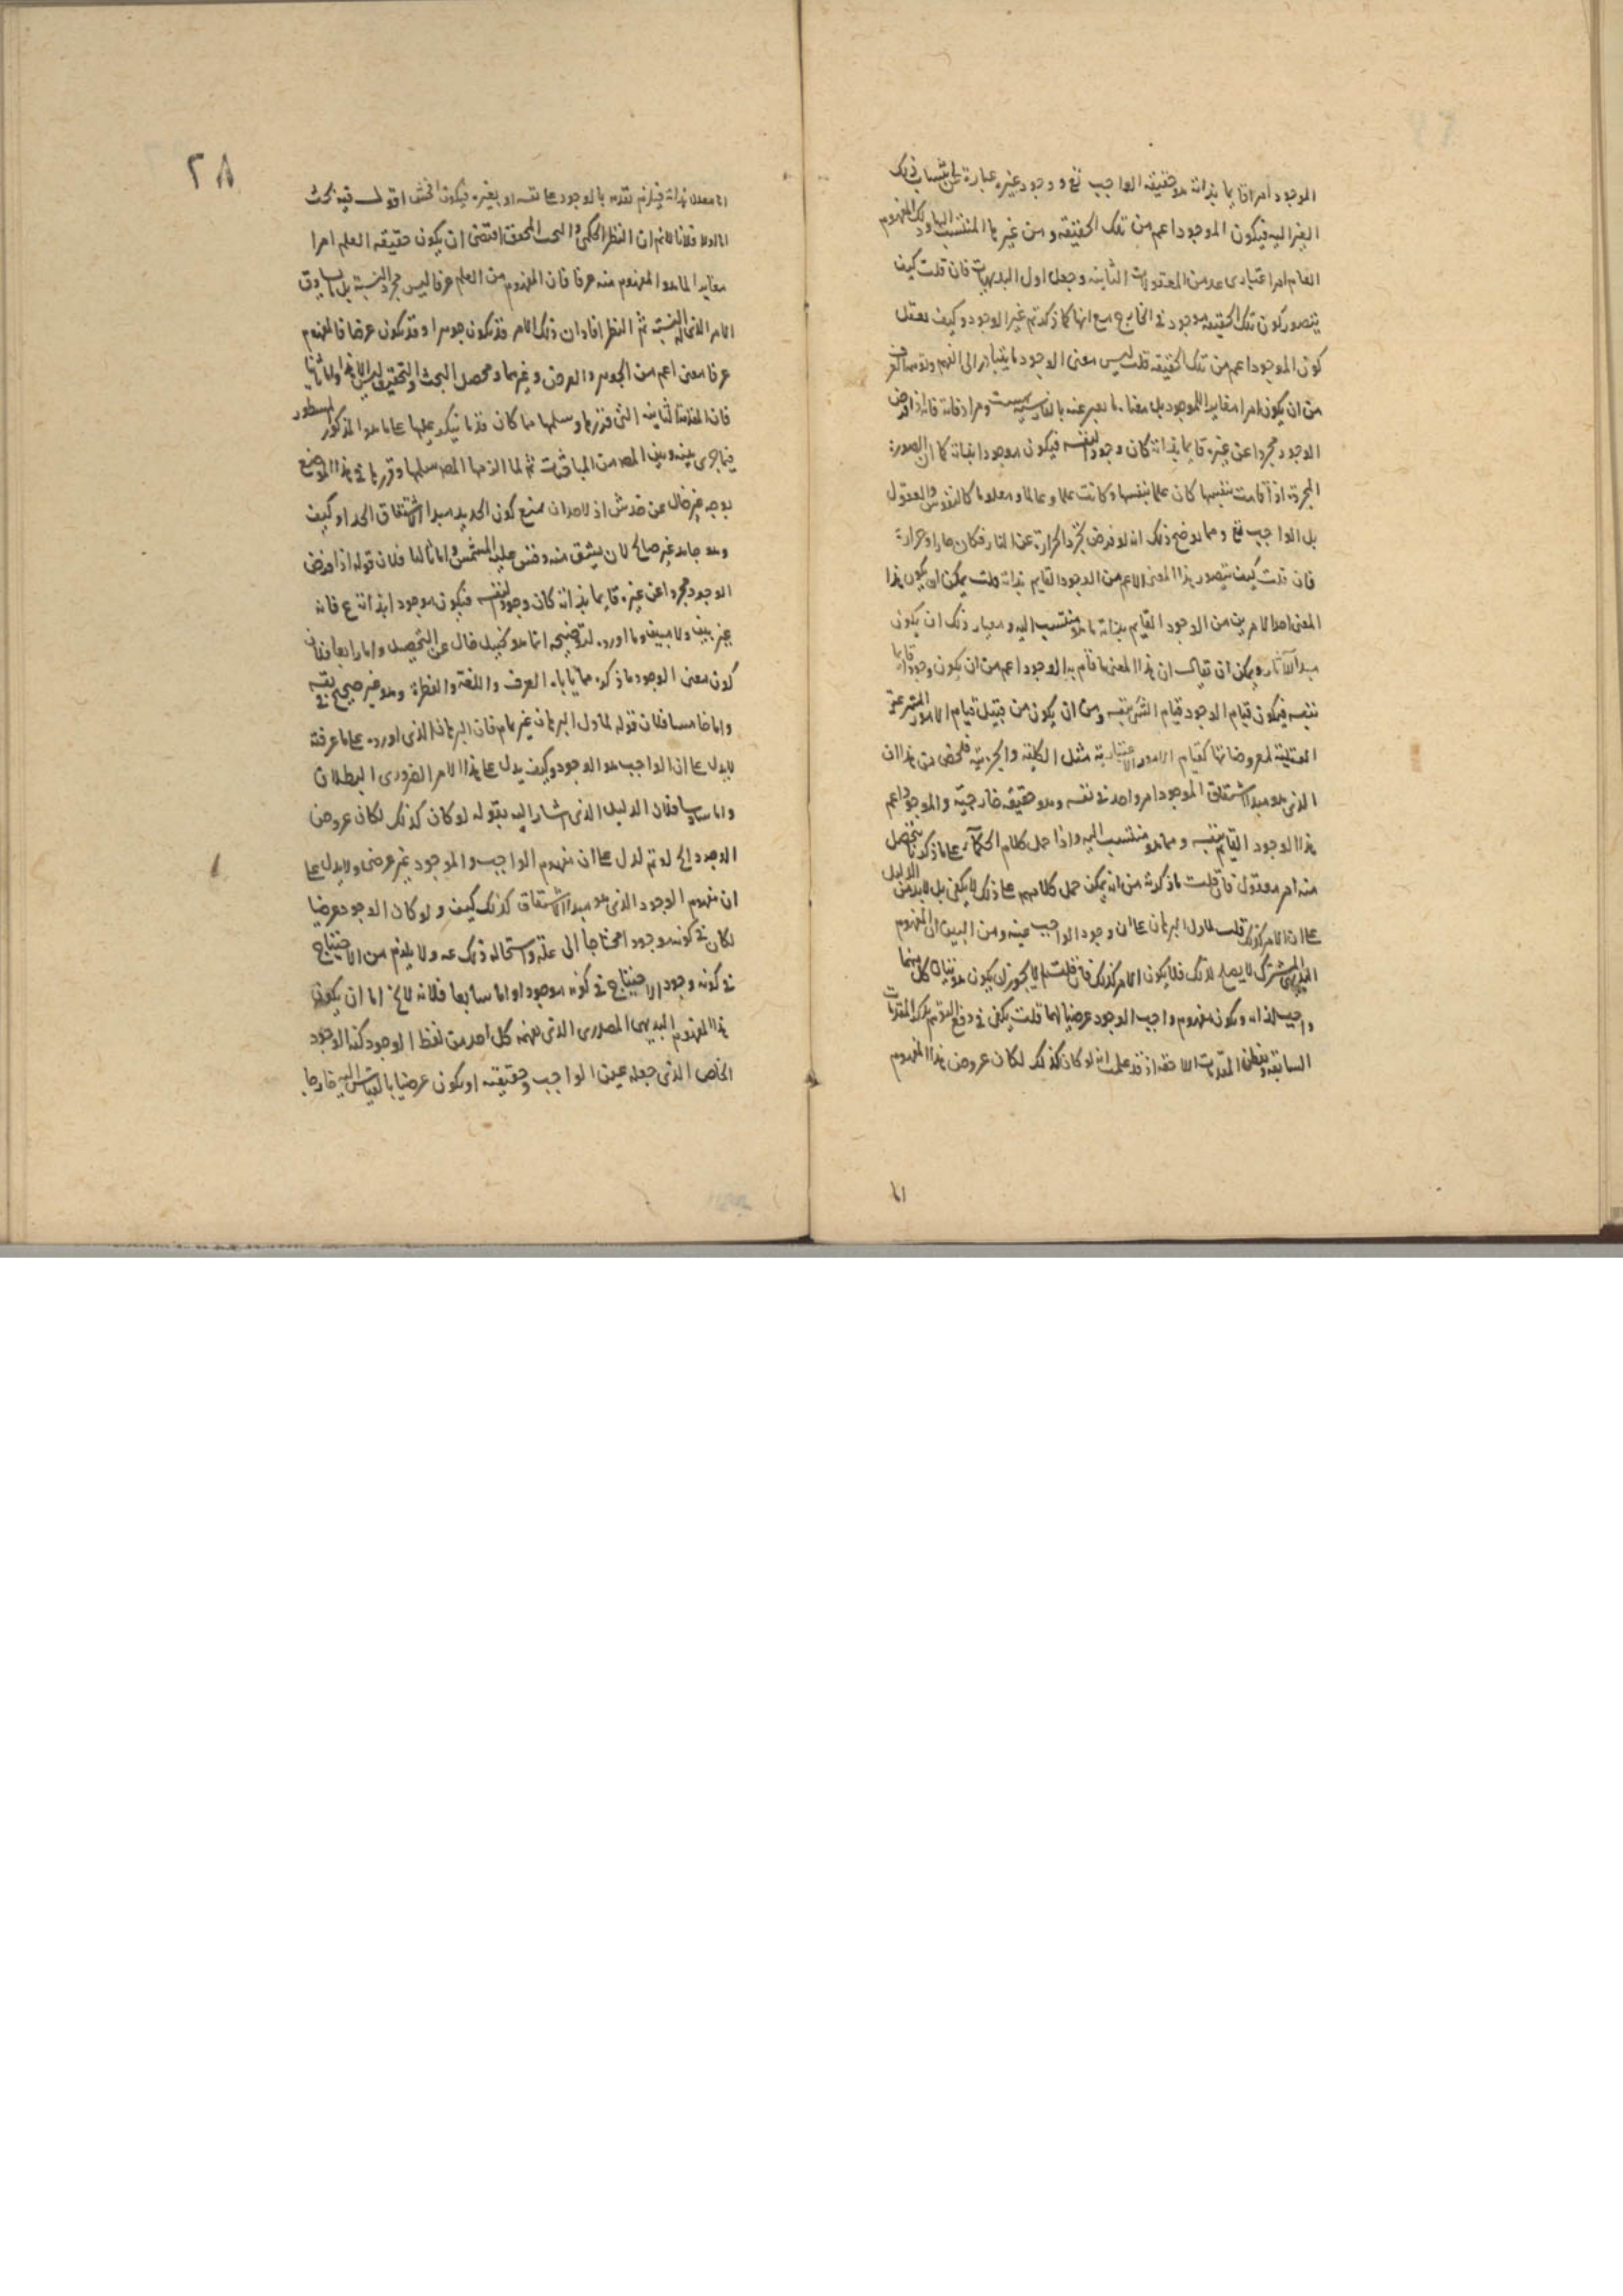 الموجود امرا قايما بذاته هو حقيقة الواجب تع ووجود غيره عبارة عن انتساب ذلك
الغير اليه فيكون الموجود اعم من تلك الحقيقة ومن غيرها المنتسب اليها وذلك المفهوم
العام امر اعتبارى عد من المعقولات الثانية وجعل اول البديهيات فان قلت كيف
يتصور كون تلك الحقيقة موجودة فى الخارج مع انها كما ذكرتم غير الوجود وكيف يعقل
كون الموجود اعم من تلك الحقيقة قلت ليس معنى الوجود ما يتبادر الى الفهم ويوهمه العرف
من ان يكون امرا مغايرا للوجود بل معناه ما يعبر عنه بالفارسية بهست ومرادفاته فاذا فرض
الوجود مجردا عن غيره قايما بذاته كان وجودا لنفسه فيكون موجودا بذاته كما ان الصورة
المجردة اذا قامت بنفسها كان علما بنفسها وكانت علما وعالما ومعلوما كالنفوس والعقول
بل الواجب تع ومما يوضح ذلك انه لو فرض تجرد الحرارة عن النار فكان حارا وحرارة
فان قلت كيف يتصور هذا المعنى الاعم من الوجود القايم بذاته قلت يمكن ان يكون هذا
المعنى احد الامرين من الوجود القايم بذاته وما هو منتسب اليه ومعيار ذلك ان يكون
مبدأ الآثار ويمكن ان يقال ان هذا المعنى ما قام به الوجود اعم من ان يكون وجودا قايما
بنفسه فيكون قيام الوجود به قيام الشئ بنفسه ومن ان يكون من قبيل قيام الامور المنتزعة
العقلية لمعروضاتها كقيام الامور الاعتبارية مثل الكلية والجزئية فلخص من هذا ان
الذى هو مبدأ اشتقاق الموجود امر واحد فى نفسه وهو حقيقة خارجية والموجود اعم
هذا الوجود القايم بنفسه ومما هو منتسب اليه واذا حمل كلام الحكماء على ما ذكرنا يتحصل
منه امر معقول فان قلت ما ذكرته من انه يمكن حمل كلامهم على ذلك لا يكفى بل لا بد من الدليل
على ان الامر كذلك قلت لما دل البرهان على ان وجود الواجب عينه ومن البين ان المفهوم
البديهى المشترك لا يصلح لذلك فلا يكون الامر كذلك فان قلت لم لا يجوز ان يكون هويتان كل منهما
واجب لذاته ويكون مفهوم واجب الوجود عرضيا لهما قلت يكفى فى دفع التوهم تذكر المقدمات
السابقة وتفطن المقدمات اللاحقة اذ قد علمت انه لو كان كذلك لكان عروض هذا المفهوم
اما
٢٨
اما معلولا لذاته فيلزم تقدمه بالوجود على نفسه او بغيره فيكون افحش اقول فيه بحث
اما اولا فلانا لا نم ان النظر الحكمى والبحث المحقق اقتضى ان يكون حقيقة العلم امرا
مغايرا لما هو المفهوم منه عرفا فان المفهوم من العلم عرفا ليس مجرد النسبة بل ما يساوق
الامر الذى له النسبة ثم النظر افاد ان ذلك الامر قد يكون جوهرا وقد يكون عرضا فالمفهوم
عرفا معنى اعم من الجوهر والعرض وغيرهما ومحصل البحث والتحقيق ليس الا هذا واما ثانيا
فان المقدمة الثانية التى قررها وسلمها مما كان قدما ينكر عليها على ما هو المذكور المسطور
فيما جرى بينه وبين المص من المباحثات ثم لما الزمها المص سلمها وقررها فى هذا الموضع
بوجه غير خال عن خدش اذ لاحد ان يمنع كون الحديد مبدأ اشتقاق الحداد وكيف
وهو جامد غير صالح لان يشتق منه وقس عليه المشمس واما ثالثا فلان قوله اذا فرض
الوجود مجردا عن غيره قايما بذاته كان وجودا لنفسه فيكون موجودا بذاته ع فانه
غير بين ولا مبين وما اورده لتوضيحه انما هو تخييل خال عن التحصيل واما رابعا فلان
كون معنى الوجود ما ذكره مما يأباه العرف واللغة والفطرة وهو غير صحيح فى نفسه
واما خامسا فلان قوله لما دل البرهان غير تام فان البرهان الذى اورده على ما عرفته
لا يدل على ان الواجب هو الوجود وكيف يدل على هذا الامر الضرورى البطلان
واما سادسا فلان الدليل الذى اشار اليه بقوله لو كان كذلك لكان عروض
الوجود الخ لو تم لدل على ان مفهوم الواجب والموجود غير عرضى ولا يدل على
ان مفهوم الوجود الذى هو مبدأ الاشتقاق كذلك كيف ولو كان الوجود عرضيا
لكان فى كونه موجودا محتاجا الى علة واستحالة ذلك عه ولا يلزم من الاحتياج
فى كونه وجودا الاحتياج فى كونه موجودا واما سابعا فلانه لا يخ اما ان يكون
هذا المفهوم البديهى المصدرى الذى يفهمه كل احد من لفظ الوجود كنه الوجود
الخاص الذى جعله عين الواجب وحقيقته او يكون عرضيا بالقياس اليه خارجا